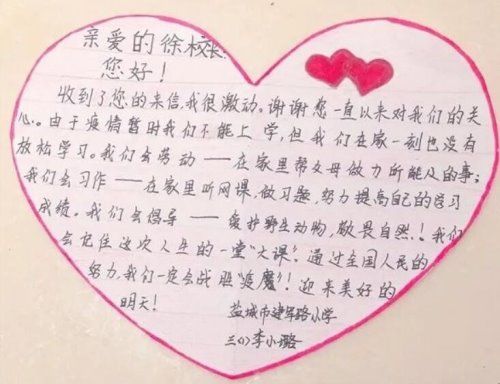 亲爱的徐校长:
您好！
收到了您的来信,我很激动。谢谢您一直以来对我们的关
心。由于疫情暂时我们不能上学,但我们在家一刻也没有
放松学习。我们会劳动——在家里帮父母做力所能及的事;
我们会习作——在家里听网课,做习题,努力提高自己的学习
成绩。我们会倡导——爱护野生动物,敬畏自然!我们
会记住这次人生的一堂“大课”,通过全国人民的
努力,我们一定会战胜“疫魔”!迎来美好的
明天!
盐城市建军路小学
三(1)李小璐